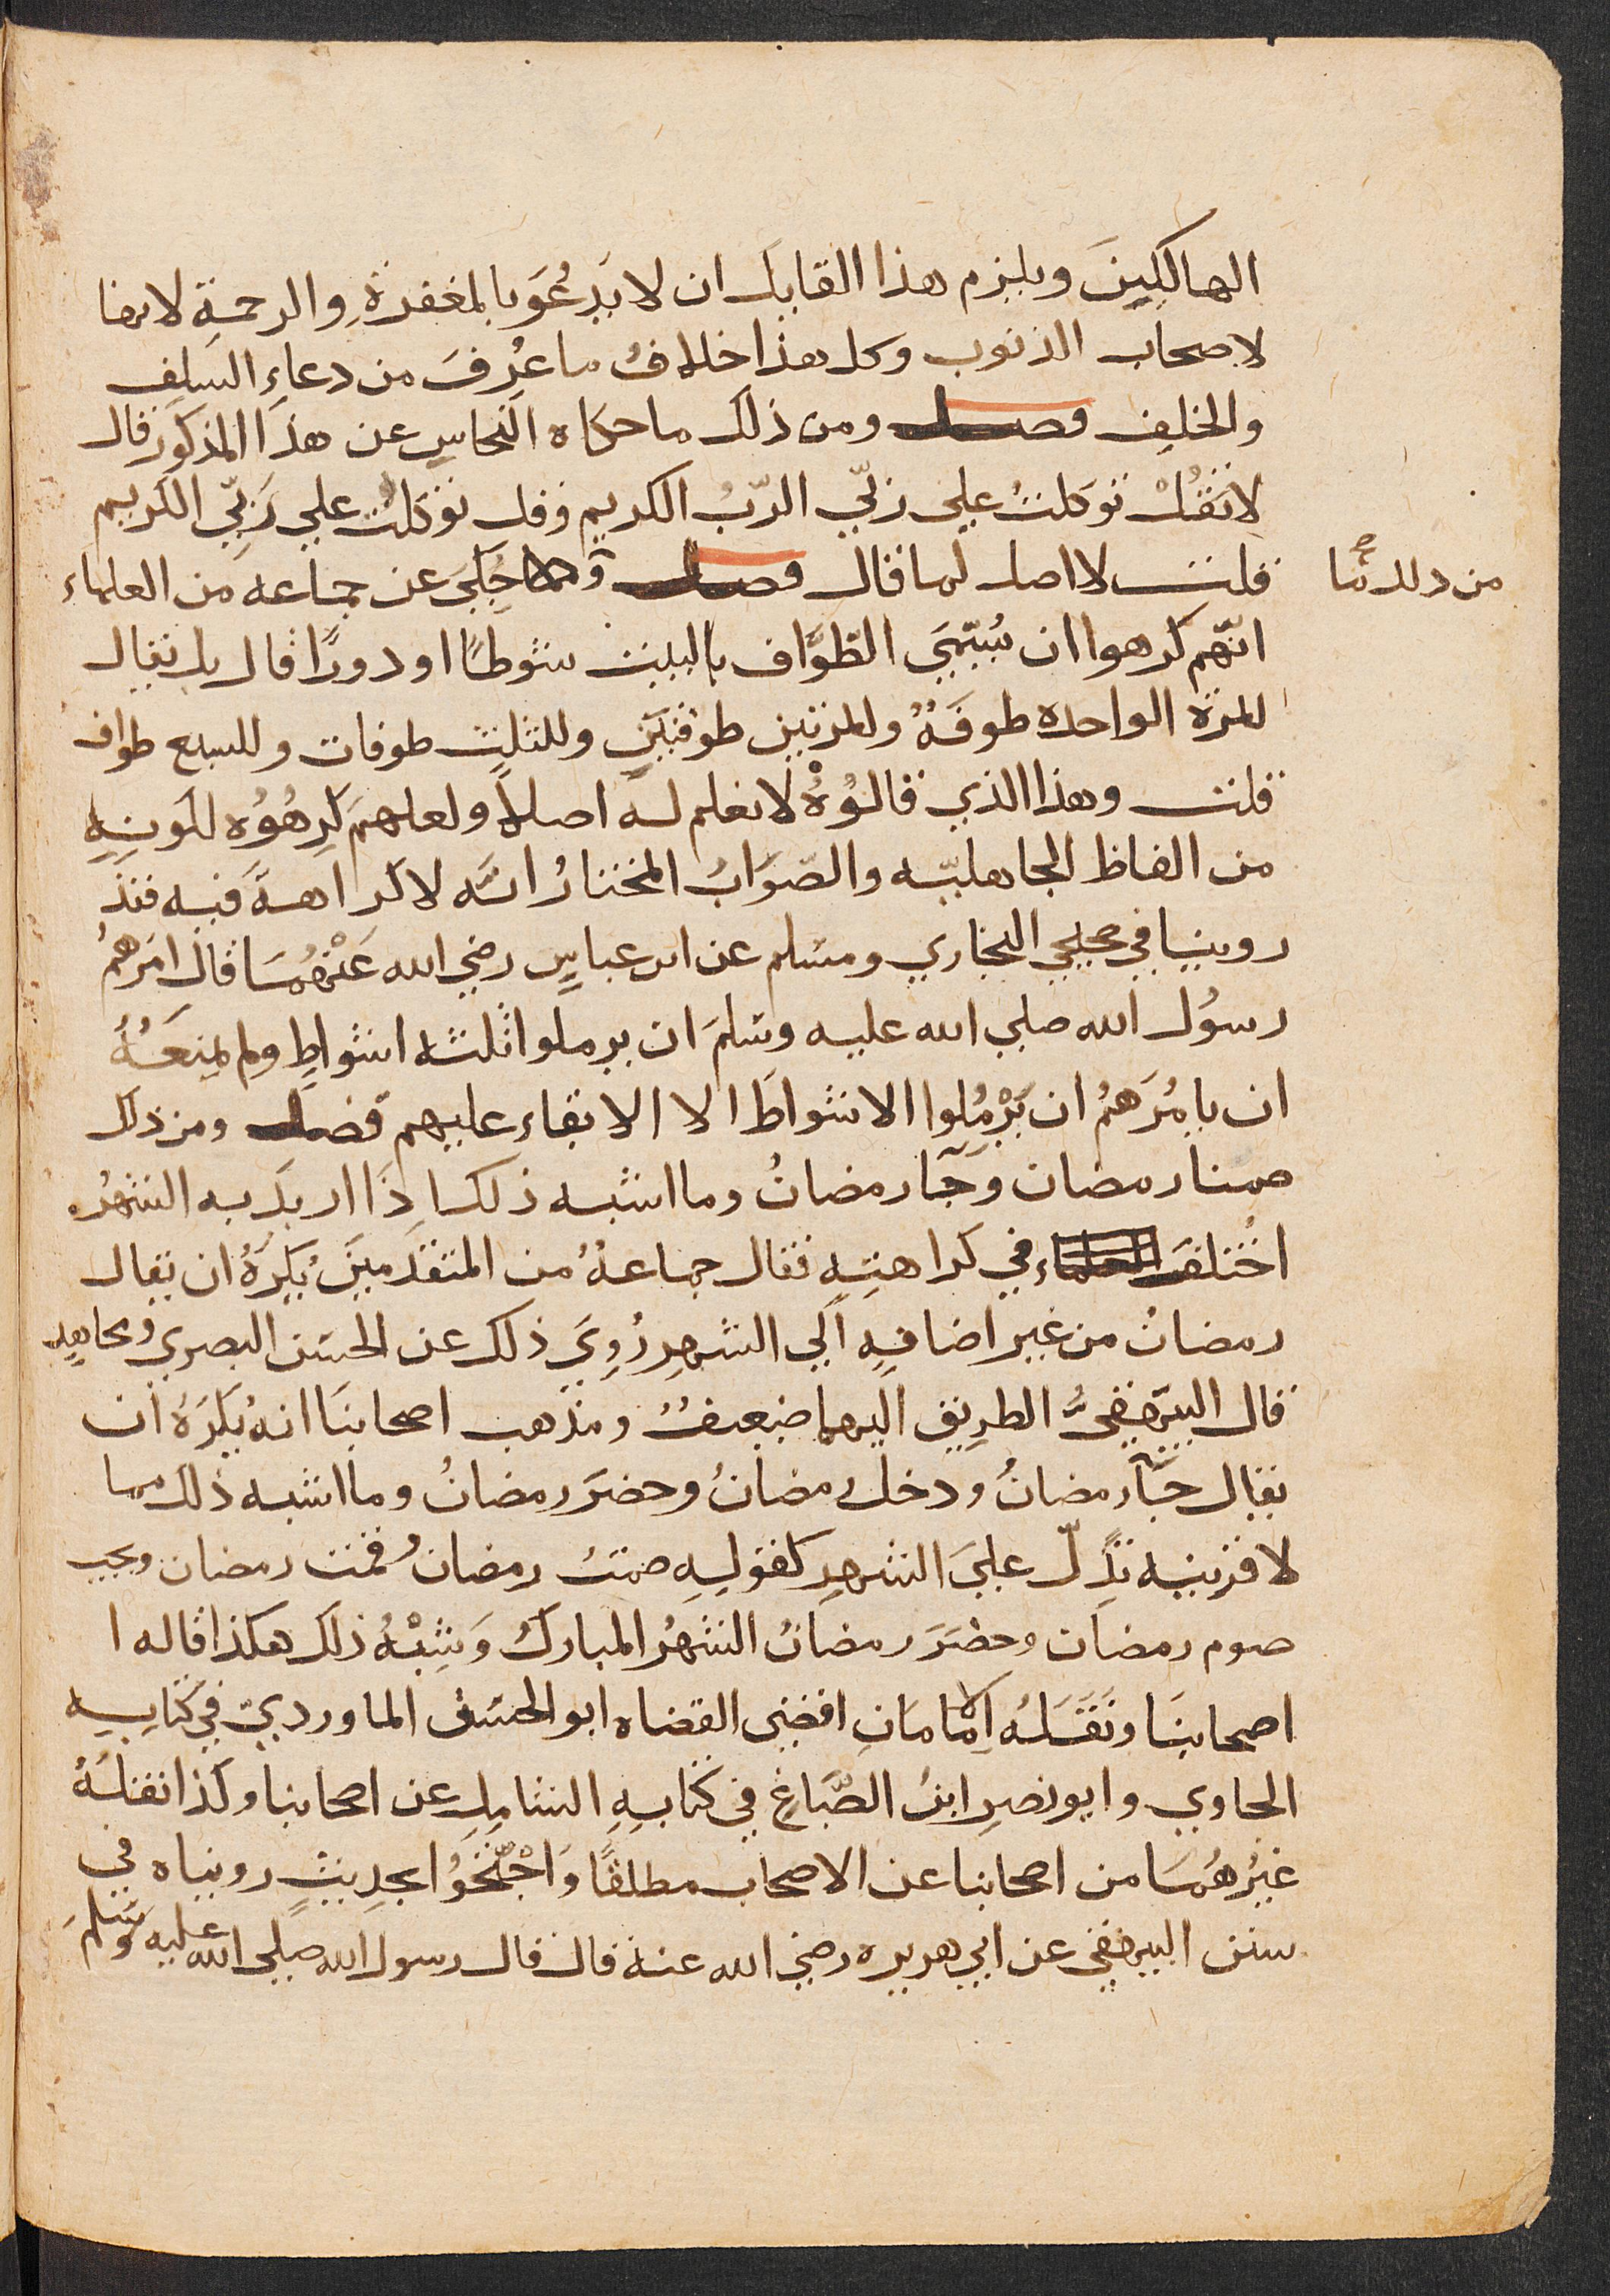 الهالكينَ ويلزم هذا القايل ان لا يَدعُوَ بالمغفرةِ والرحمةِ لانها
لاصحاب الذنوب وكل هذا خلاف ما عُرِفَ من دعاءِ السلفِ
والخلفِ فصل ومن ذلك ما حكاه النحاس عن هذا المذكور قال
لا تقُلْ توكلتُ علي ربّي الرّبُ الكريم وقل توكلتُ علي رَبّي الكريم
قلت لا اصل لما قال فصل حُكيَ عن جماعه من العلماء
من ذلك ما صح
انّهم كرهوا ان يُسَمّيَ الطَّوَّاف بالبيت شوطًا او دورًا قال بل يقال
للمرّة الواحده طوفَةٌ وللمرتين طوفتَينِ وللثلث طوفات وللسبع طواف
قلت وهذا الذي قالُوْهُ لا نعلم له اصلًا ولعلهم كرِهُوْه لكونِهِ
من الفاظ الجاهليّه والصّوَابُ المختارُ انّه لا كراهةَ فيه فقد
روينا في صحيحي البخاري ومسلم عن ابن عباسٍ رضي الله عَنْهُمَا قال امَرَهمُ
رسُول الله صلي الله عليه وسلمَ ان يرملوا ثلثه اشواطِ ولم يمنَعْهُ
ان يامُرَهمُ ان يَرْمُلوا الاشواطَ الا الابقاء عليهم فصل ومن ذلك
صمنا رمضان وَجَآ رمضانُ وما اشبه ذلك اِذَا اريدَ به الشهرُ
اختُلفَ في كراهتِهِ فقال جماعةٌ من المتقدّمينَ يُكرَهُ ان يقال
رمضانُ من غير اضافهٍ الي الشهرِ رُوِيَ ذلك عن الحسَن البصري ومجاهدٍ
قال البيَهقيُّ الطريق اليهما ضعيفٌ ومذهب اصحابنَا انهُ يُكرَهُ ان
يقال جَآ رمضانُ ودخل رمضانُ وحضَرَ رمضانُ وما اشبه ذلك مما
لا قرينه تدُلّ علَيَ الشهرِ كقولِهِ صمتُ رمضانَ وقمت رمضان ويجب
صوم رمضان وحضَرَ رمضانُ الشهرُ المباركُ وَشِبْهُ ذلك هكذا قاله ا
اصحابنَا ونَقَلَه الامامَانِ اقضي القضاه ابو الحسَن الماورديّ في كتابِهِ
الحاوي وابو نصرِ ابنُ الصَّبَاغِ في كتابِهِ الشامِلِ عن اصحابنا وكذا نقلَهُ
غيرُهُمَا من اصحابنا عن الاصحاب مطلقًا وَاحْتَجُّوْا بحدِيثٍ رويناه في
سنن البيهقي عن ابي هريره رضي الله عنهُ قال قال رسول الله صلي الله عليه وسَلمَ